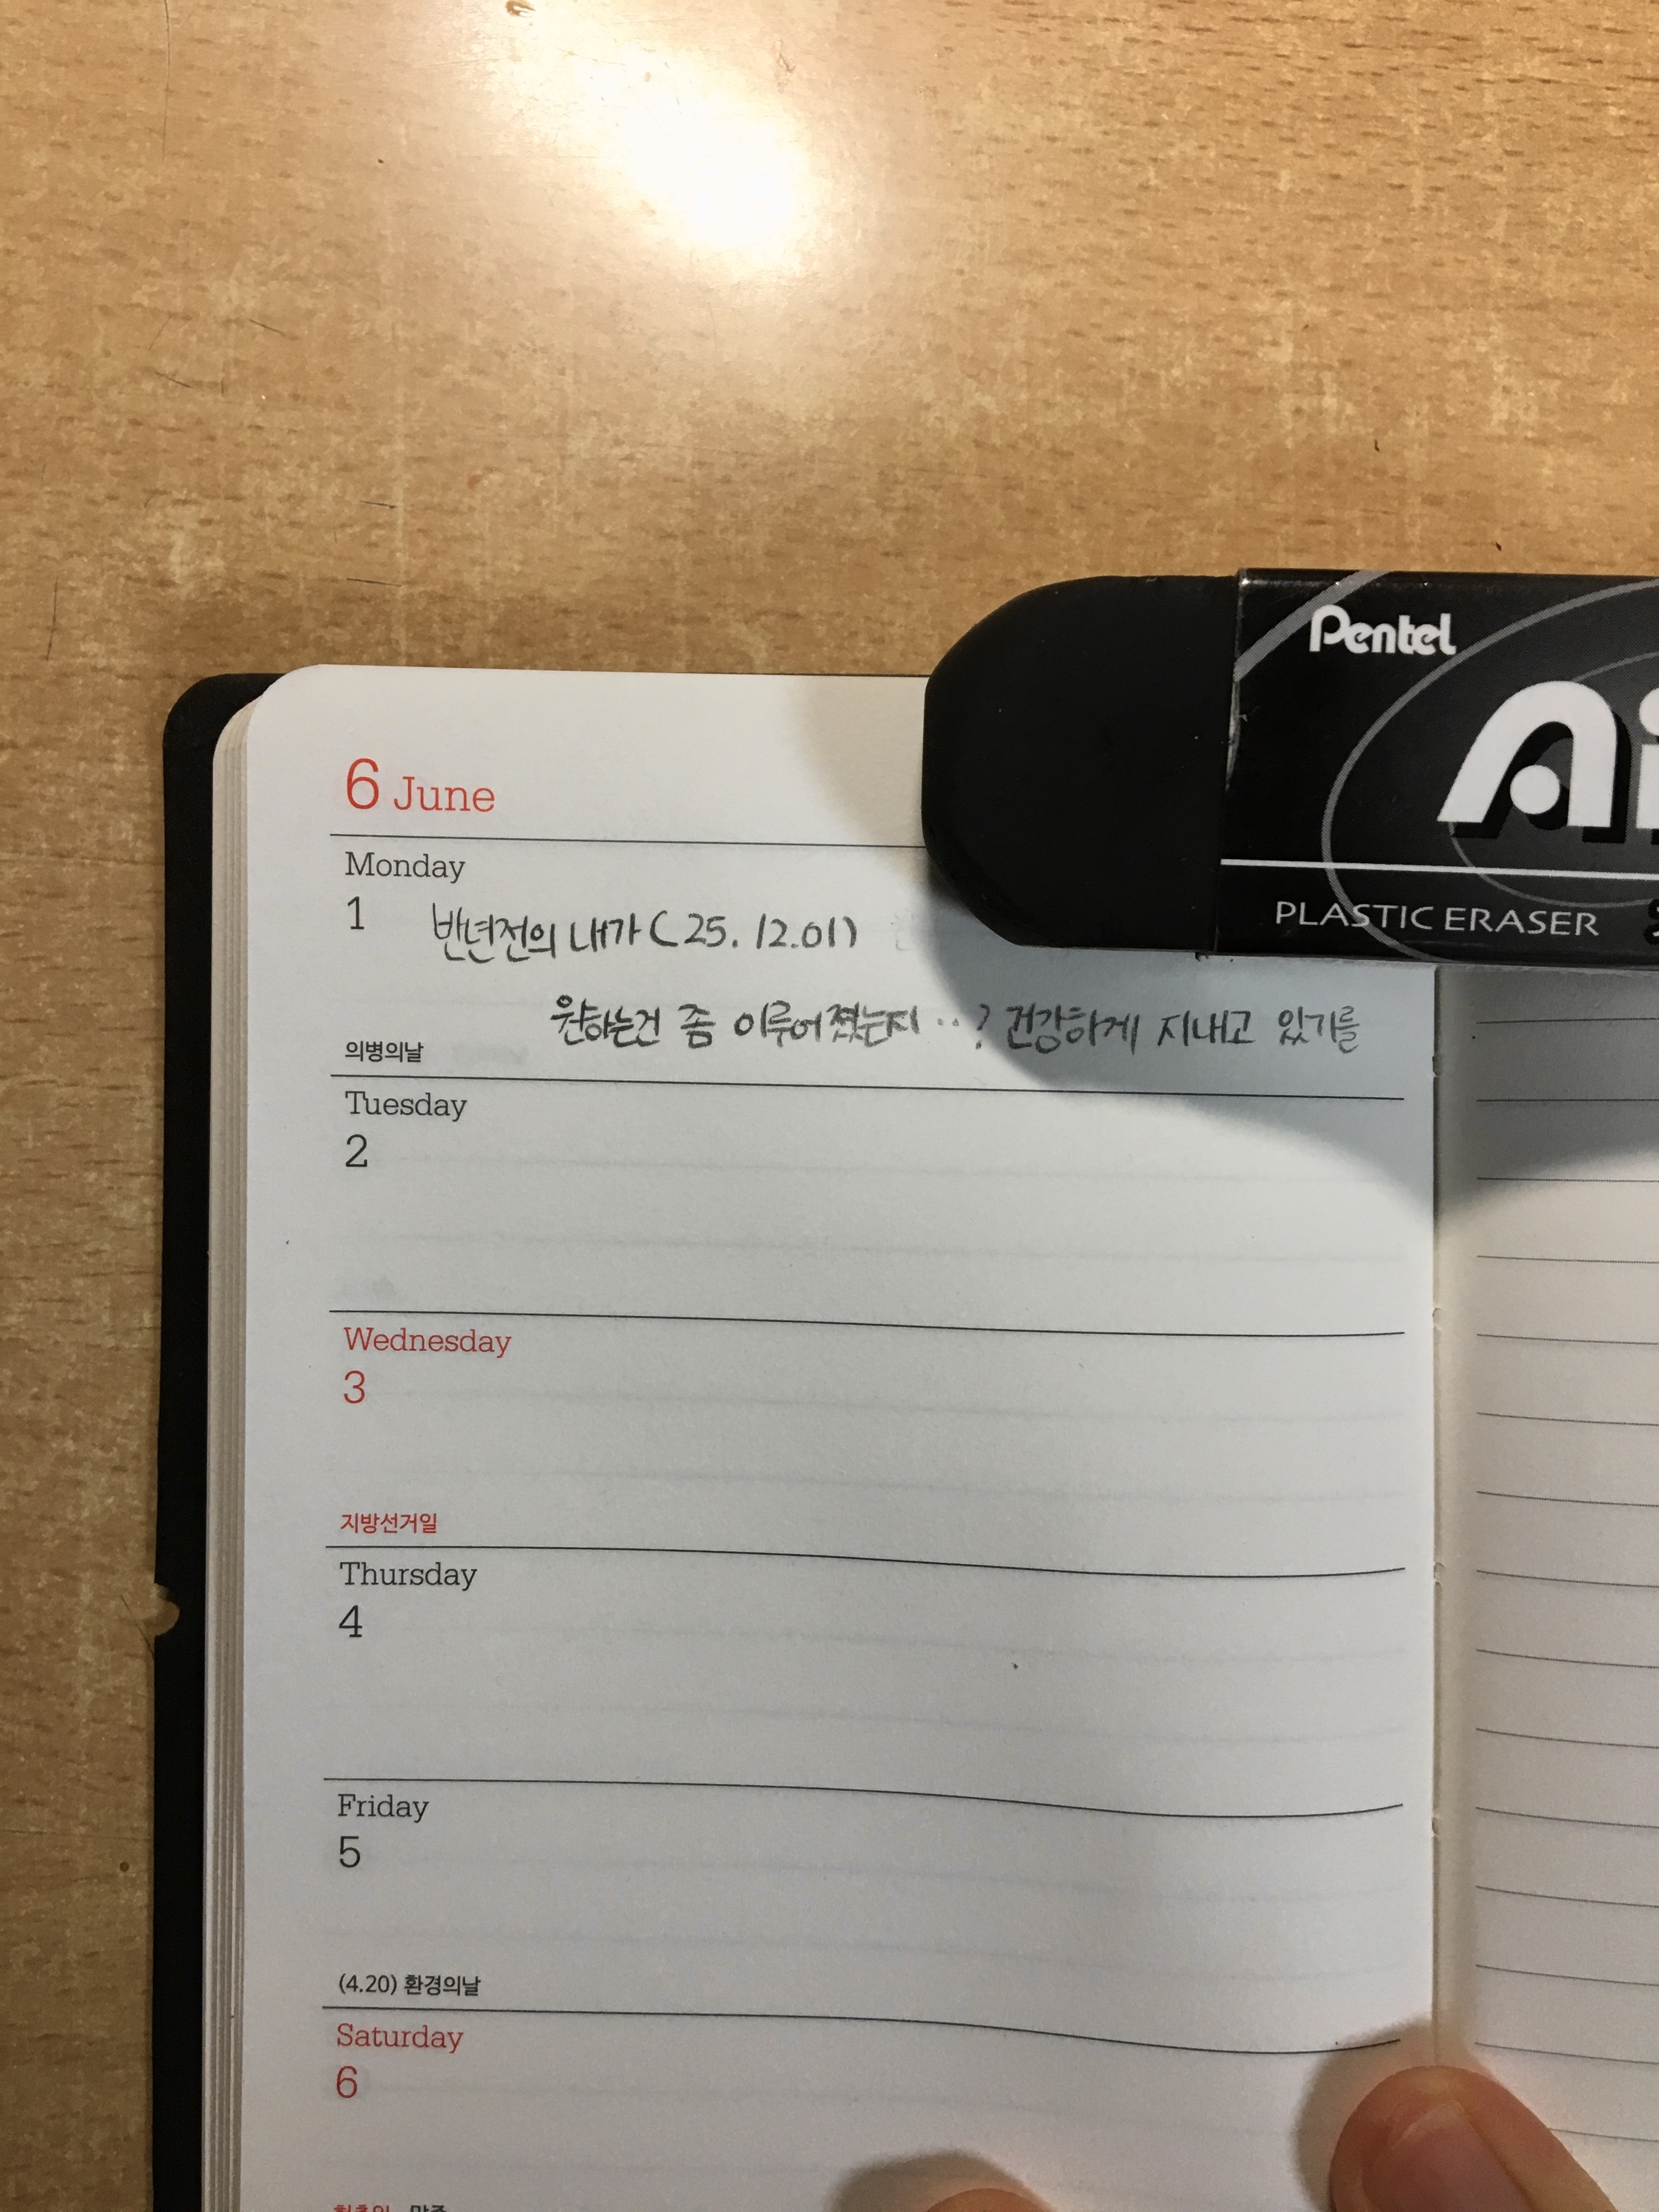 6 June
Monday
1
반년전의 내가 (25. 12. 01)
원하는건 좀 이루어졌는지 ..? 건강하게 지내고 있기를
의병의날
Tuesday
2
Wednesday
3
지방선거일
Thursday
4
Friday
5
(4.20) 환경의날
Saturday
6
Pentel
PLASTIC ERASER